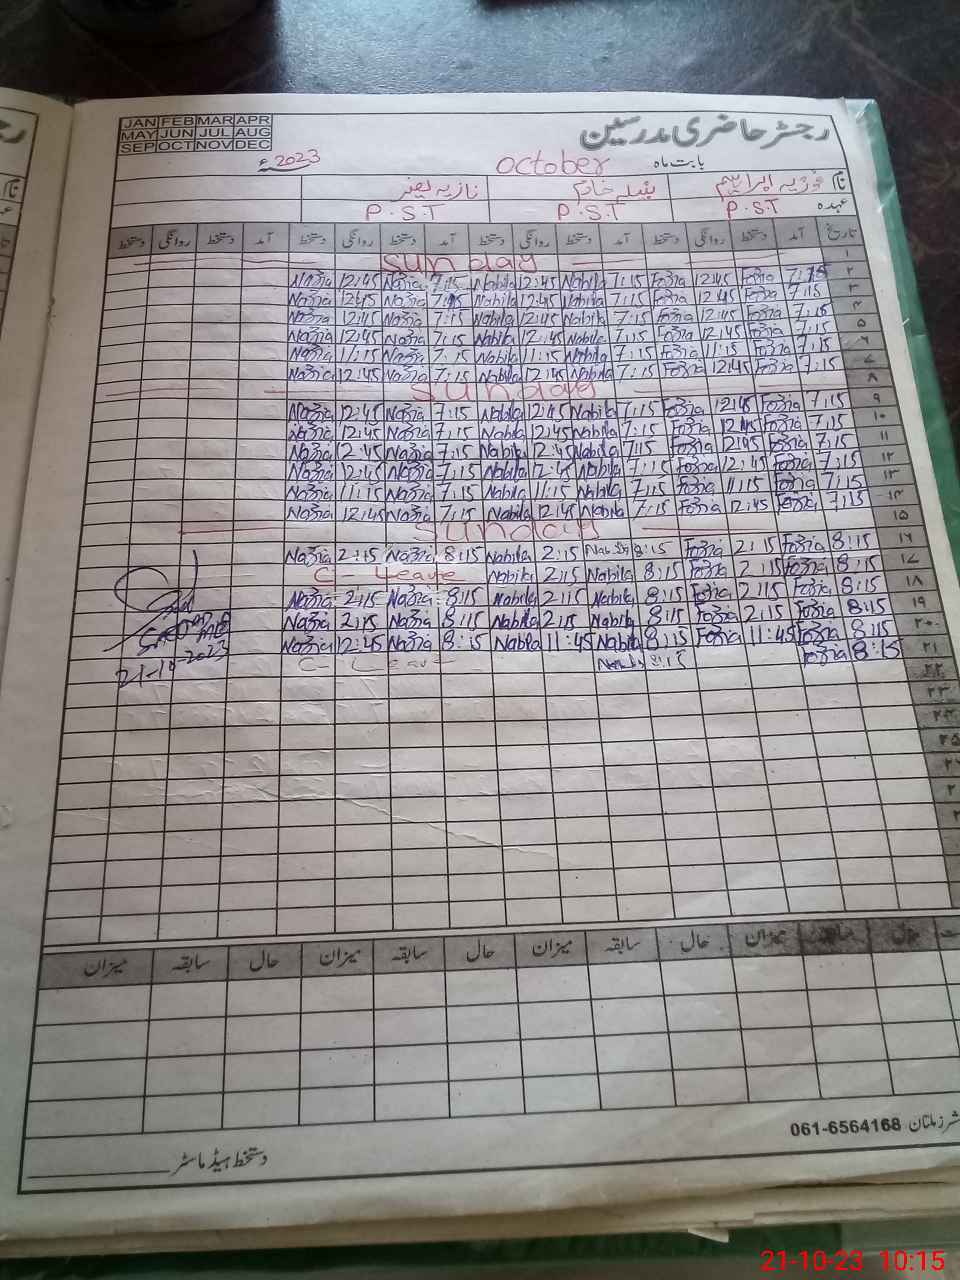 JAN FEB MAR APR
MAY JUN JUL AUG
SEP OCT NOV DEC
رجسٹر حاضری مدرسین
بابت ماہ October 2023ء
نام فوزیہ ابراہیم نبیلہ خانم نازیہ
عہدہ P.S.T P.S.T P.S.T
تاریخ آمد دستخط روانگی دستخط آمد دستخط روانگی دستخط آمد دستخط روانگی دستخط آمد دستخط روانگی دستخط
۱ Sunday
۲ 7:15 Fozia 12:45 Fozia 7:15 Nabila 12:45 Nabila 7:15 Nazia 12:45 Nazia
۳ 7:15 Fozia 12:45 Fozia 7:15 Nabila 12:45 Nabila 7:15 Nazia 12:45 Nazia
۴ 7:15 Fozia 12:45 Fozia 7:15 Nabila 12:45 Nabila 7:15 Nazia 12:45 Nazia
۵ 7:15 Fozia 12:45 Fozia 7:15 Nabila 12:45 Nabila 7:15 Nazia 12:45 Nazia
۶ 7:15 Fozia 11:15 Fozia 7:15 Nabila 11:15 Nabila 7:15 Nazia 11:15 Nazia
۷ 7:15 Fozia 12:45 Fozia 7:15 Nabila 12:45 Nabila 7:15 Nazia 12:45 Nazia
۸ Sunday
۹ 7:15 Fozia 12:45 Fozia 7:15 Nabila 12:45 Nabila 7:15 Nazia 12:45 Nazia
۱۰ 7:15 Fozia 12:45 Fozia 7:15 Nabila 12:45 Nabila 7:15 Nazia 12:45 Nazia
۱۱ 7:15 Fozia 12:45 Fozia 7:15 Nabila 12:45 Nabila 7:15 Nazia 12:45 Nazia
۱۲ 7:15 Fozia 12:45 Fozia 7:15 Nabila 12:45 Nabila 7:15 Nazia 12:45 Nazia
۱۳ 7:15 Fozia 11:15 Fozia 7:15 Nabila 11:15 Nabila 7:15 Nazia 11:15 Nazia
۱۴ 7:15 Fozia 12:45 Fozia 7:15 Nabila 12:45 Nabila 7:15 Nazia 12:45 Nazia
۱۵ Sunday
۱۶ 8:15 Fozia 2:15 Fozia 8:15 Nabila 2:15 Nabila 8:15 Nazia 2:15 Nazia
۱۷ 8:15 Fozia 2:15 Fozia 8:15 Nabila 2:15 Nabila C-Leave
۱۸ 8:15 Fozia 2:15 Fozia 8:15 Nabila 2:15 Nabila 8:15 Nazia 2:15 Nazia
۱۹ 8:15 Fozia 2:15 Fozia 8:15 Nabila 2:15 Nabila 8:15 Nazia 2:15 Nazia
۲۰ 8:15 Fozia 11:45 Fozia 8:15 Nabila 11:45 Nabila 8:15 Nazia 12:45 Nazia
۲۱ 8:15 Fozia 8:15 Nabila C-Leave
21-10-2023
۲۲
۲۳
۲۴
۲۵
حال سابقہ میزان حال سابقہ میزان حال سابقہ میزان حال سابقہ میزان
ملتان 061-6564168
دستخط ہیڈ ماسٹر
21-10-23 10:15